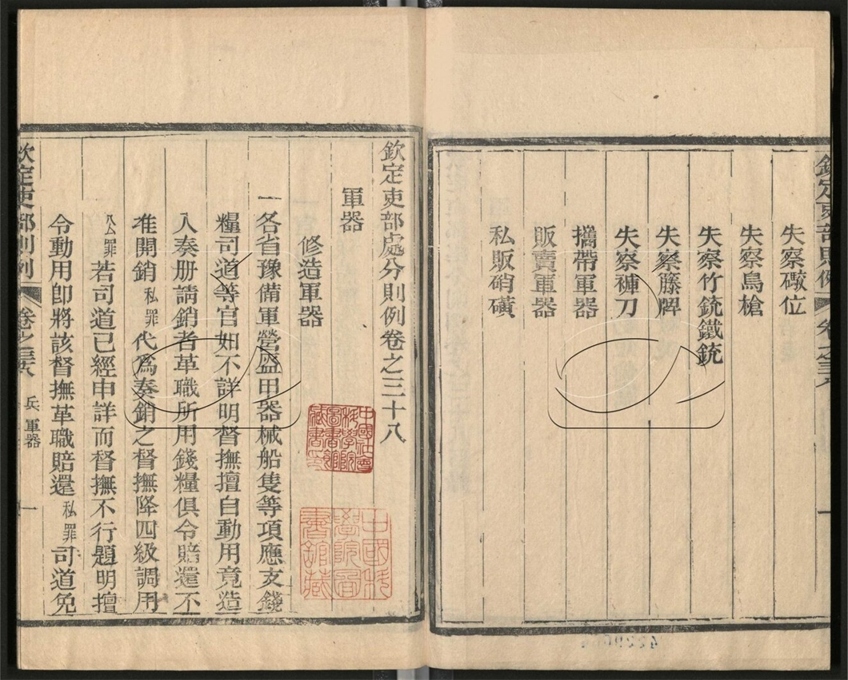 欽定吏部則例
卷之三十八
一
失察礮位
失察鳥槍
失察竹銃鐵銃
失察藤牌
失察褲刀
攜帶軍器
販賣軍器
私販硝磺
欽定吏部處分則例卷之三十八
軍器
修造軍器
一各省豫備軍營盔甲器械船隻等項應支錢
糧司道等官如不詳明督撫擅自動用竟造
入奏册請銷者革職所用錢糧俱令賠還不
准開銷私罪代爲奏銷之督撫降四級調用
公罪若司道已經申詳而督撫不行題明擅
令動用卽將該督撫革職賠還私罪司道免
欽定吏部則例
卷之三十八
兵 軍器
一
中國科
學院圖
書館藏